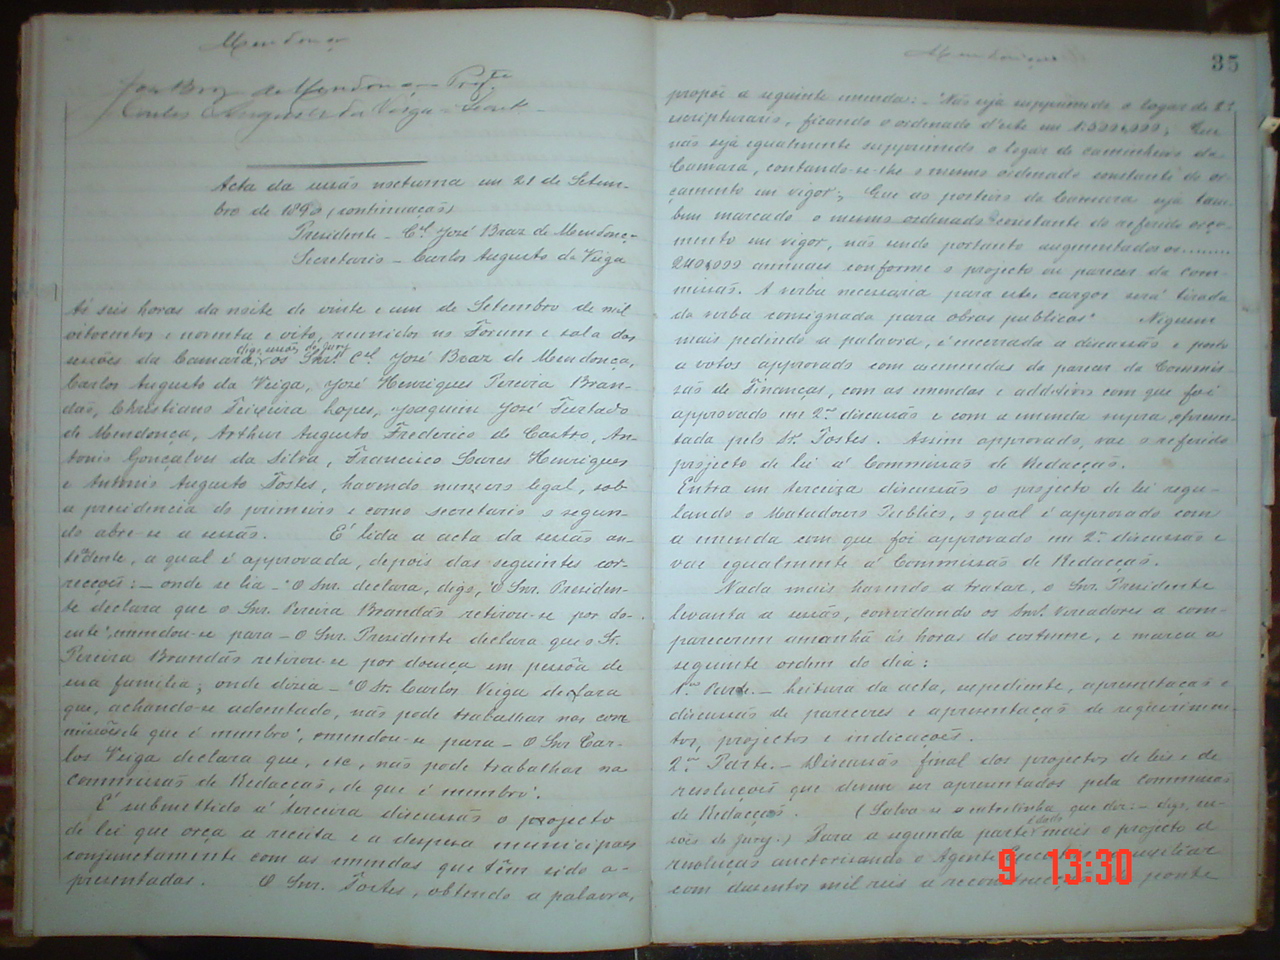 Mendonça
José Braz de Mendonça - Presᵗᵉ
Carlos Augusto da Veiga - Secretº
Acta da sessão nocturna em 21 de Setem-
bro de 1898 (continuação)
Presidente - Cel. José Braz de Mendonça
Secretario - Carlos Augusto da Veiga
Ás seis horas da noite de vinte e um de Setembro de mil
oitocentos e noventa e oito, reunidos no Forum e sala das
digo, sessões do Jury
sessões da Camara, os Snrs. Cel. José Braz de Mendonça,
Carlos Augusto da Veiga, José Henriques Pereira Bran-
dão, Christiano Teixeira Lopes, Joaquim José Furtado
de Mendonça, Arthur Augusto Frederico de Castro, An-
tonio Gonçalves da Silva, Francisco Soares Henriques
e Antonio Augusto Tostes, havendo numero legal, sob
a presidencia do primeiro e como secretario o segun-
do abre-se a sessão. É lida a acta da sessão an-
tecedente, a qual é approvada, depois das seguintes cor-
recções: - onde se lia - "O Snr. declara, digo, "O Snr. Presiden-
te declara que o Snr. Pereira Brandão retirou-se por do-
ente", emendou-se para - O Snr. Presidente declara que o Sr.
Pereira Brandão retirou-se por doença em pessôa de
sua familia; onde dizia - "O Sr. Carlos Veiga declara
que, achando-se adoentado, não pode trabalhar nas com
missões de que é membro", emendou-se para - O Snr Car-
los Veiga declara que, etc, não pode trabalhar na
commissão de Redacção, de que é membro".
É submettido á terceira discussão o projecto
de lei que orça a receita e a despesa municipaes
conjunctamente com as emendas que têm sido a-
presentadas. O Snr. Tostes, obtendo a palavra,
Mendonça
35
propõe a seguinte emenda: - "Não seja supprimido o logar de 2º
escripturario, ficando o ordenado d'este em 1:500$000; Que
não seja igualmente supprimido o logar de caminheiro da
Camara, contando-se-lhe o mesmo ordenado constante do or-
çamento em vigor; Que ao porteiro da Camara seja tam-
bem marcado o mesmo ordenado constante do referido orça-
mento em vigor, não sendo portanto augmentados os........
240$000 annuaes conforme o projecto ou parecer da com-
missão. A verba necessaria para estes cargos será tirada
da verba consignada para obras publicas" Niguem
mais pedindo a palavra, é encerrada a discussão e posto
a votos approvado com as emendas do parecer da Commis
são de Finanças, com as emendas e additivos com que foi
approvado em 2ª discussão e com a emenda supra apresen-
tada pelo Sr. Tostes. Assim approvado, vae o referido
projecto de lei á Commissão de Redacção.
Entra em terceira discussão o projecto de lei regu-
lando o Matadouro Publico, o qual é approvado com
a emenda com que foi approvado em 2ª discussão e
vae egualmente á Commissão de Redacção.
Nada mais havendo a tratar, o Snr. Presidente
levanta a sessão, convidando os Snrs. Vereadores a com-
parecerem amanhã ás horas do costume, e marca a
seguinte ordem do dia:
1ª Parte. - Leitura da acta, expediente, apresentação e
discussão de pareceres e apresentação de requerimen-
tos, projectos e indicações.
2ª Parte. - Discussão final dos projectos de leis e de
resoluções que devem ser apresentados pela commissão
de Redacção. (Salva-se a entrelinha que diz: - digo, ses-
sões do Jury.) Para a segunda parte mais o projecto de
resolução auctorisando o Agente a auxiliar
com duzentos mil reis a ponte
9 13:30